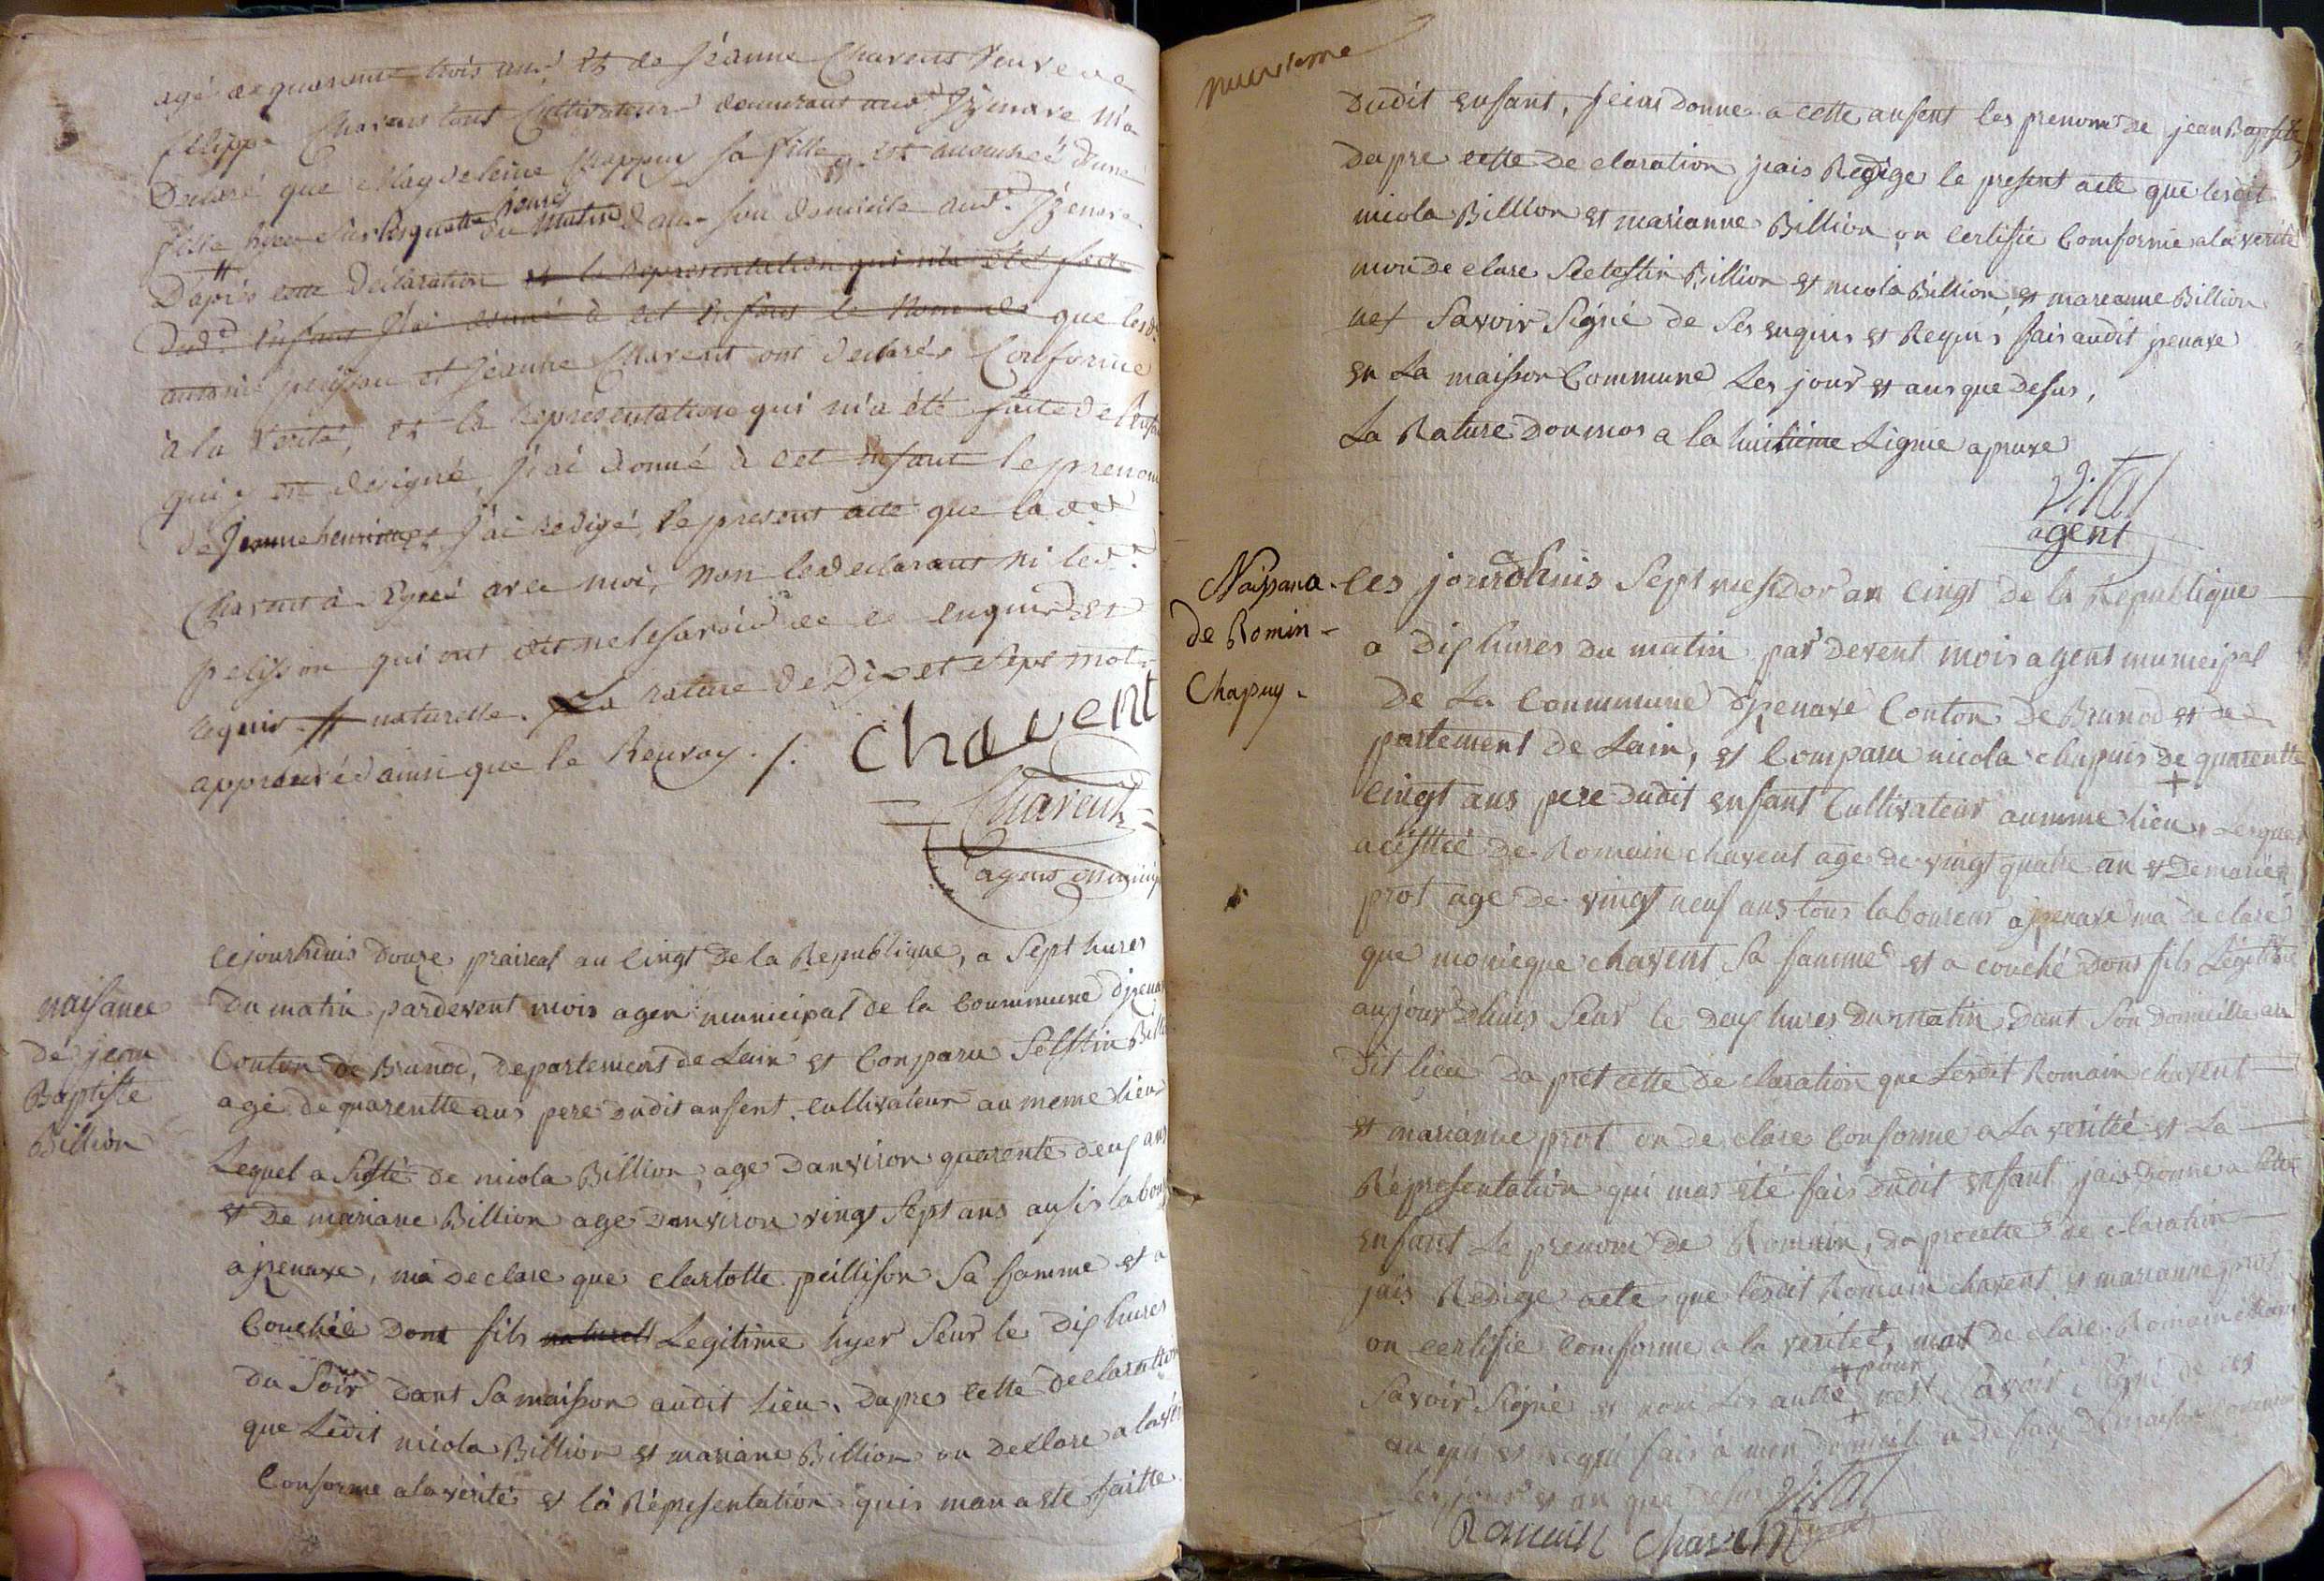 agé de quarante trois ans et de Jeanne Chavent veuve de
filippe Chavent tous Cultivateurs demeurant aud. Izenave m'a
Declaré que Magdeleine Chappuy sa fille est accouchée d'une
fille hyer sur les quatre heures du matin dans son domicile aud. Izenave
D'après cette Déclaration et la Representation qui m'a été faite
dud. Enfant J'ai donné à cet Enfant le Nom de que lesd.
pelisson et Jeanne Chavent ont declarés Conforme
à la verité, et la Représentation qui m'a été faite de l'enfant
qui y est désigné, j'ai donné à cet Enfant le prenom
de Jeanne j'ai redigé le present acte que lad.
Chavent à signé avec moi, non les declarant ni led.
pelisson qui ont dit ne le savoir de ce enquis et
requis naturelle. La rature de Dix et sept mots
approuvé ainsi que le Renvoy ./. Chavent
Chavent
agent municip
naisance
de jean
Baptiste
Billion
Cejourhuis Douze praireal an Cingt de la Republique, a Sept hures
Du matin pardevent mois agen municipal de la Coummune djenave
Conton de Brunod, departement de Lain et Conparu Selstin Bill
agé de quarentte ans pere dudit anfent cullivateur au meme lieu
Lequel a sisté de nicola Billion, age danviron quarente deux ans
et de mariane Billion age danviron vingt Sept ans ausis labour
a jzenave, ma declare que clarlotte peillison Sa famme et a
Couchée dont fils naturell Legitime hyer Seur le dix hures
du Soir dant Sa maisson audit lieu, dapres cette declaration
que Ledit nicola Billion et mariane Billion on declare a la ver
Conforme a la verité et la Répresentation quis man a ete faitte
Dudit enfant, Jeius donne a cette anfent les prenom de jean Baptiste
Dapre cette de claration jeais Redige le present acte que lesdit
nicola Billion et marianne Billion on Certifie Comforme a la verité
mon de clare Seletstin Billion et nicola Billion et marianne Billion
nes Savoir Signé de ses enquis et Requis fais audit jzenave
en La maisson Commune Les jour et ans que desus,
La Rature don mos a la huitieme Lignie apruve
Vital
agent
Naisana
de Romin
Chapuy
Ces jourdhuis Sept mesidor an Cingt de la Republique
a dix hures du matin par devent mois agent municipal
De La Commmune djzenave Conton De Brunod et de
partement de Lain, et Comparu nicola chapuis de quarentte
Cingt ans pere dudit enfant Cultivateur aumme lieu Lequel
acisttée de Romain chavent age de vingt quatre an et de marien
prot age de vingt neuf ans tous laboureur a jzenave ma declaré
que monicque chavent Sa famme et a couché dont fils Légitime
aujourdhuis Seur le deux hures du matin dant Son domicille au
dit lieu da pret cette de claration que Lesdit Romain chavent
et marianne prot on de clare Conforme a La verittée et La
Répresentation qui mas été fais dudit enfant jais donne a cette
enfant Le prenom de Romain, da precette de claration
jais Redige acte que lesdit Romain chavent et marianne prot
on certifie Comforme a la veritet, mat de clare Romain chavent
Savoir Signé et nom Les auttre + pour nest Savoir Signé de ces
an quis et requi fais à mon domicile a defaux de maison commune
les jour et an que desus Vital
Romain Chavent